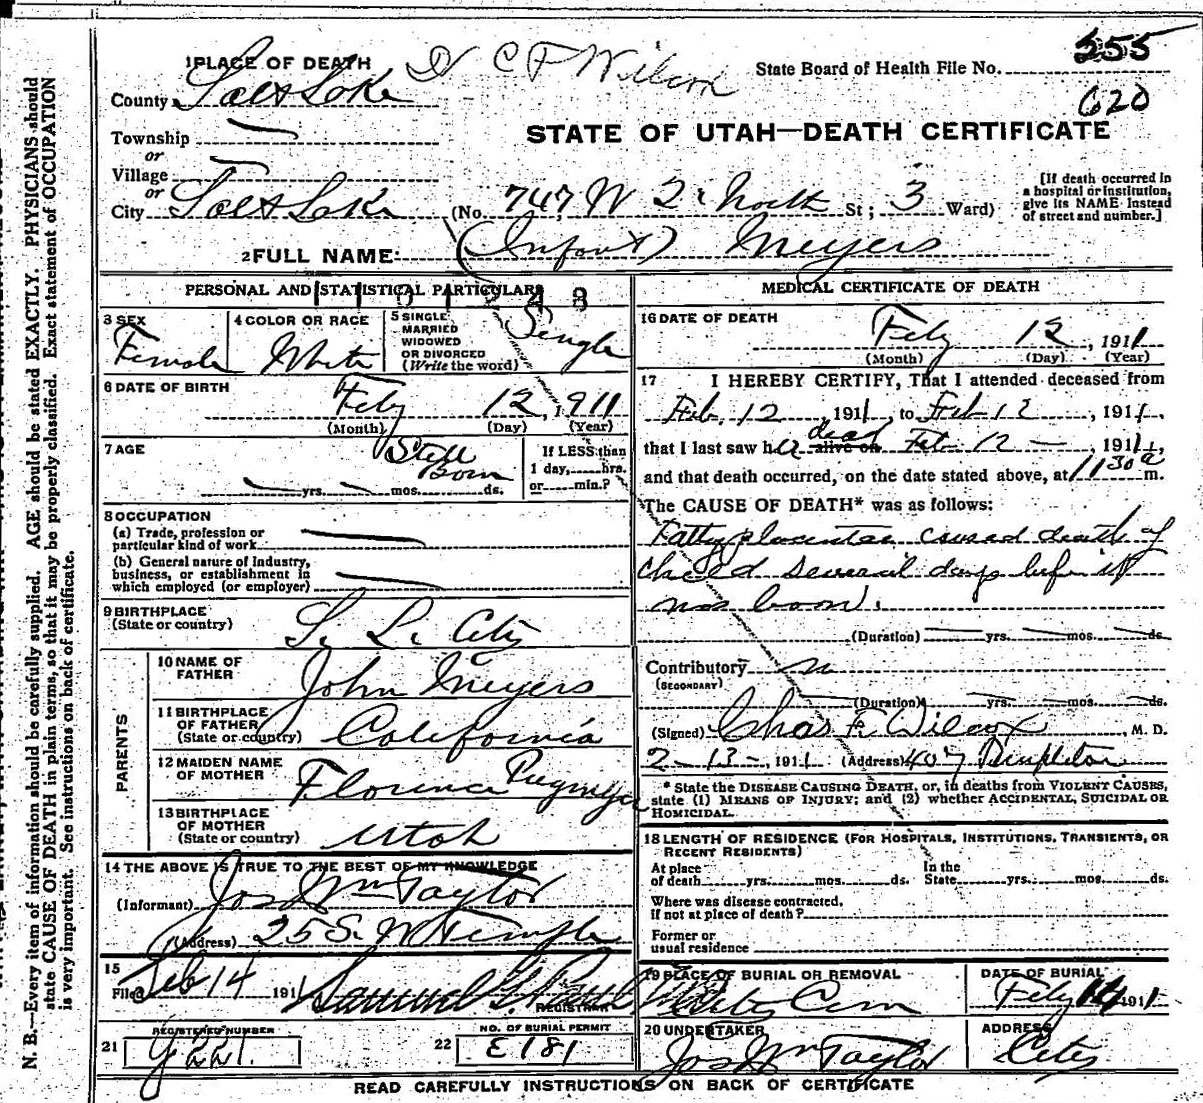 555
620
1 PLACE OF DEATH Dr C F Wilcox State Board of Health File No.
County Salt Lake
STATE OF UTAH—DEATH CERTIFICATE
Township
or
Village
or
City Salt Lake (No. 747 W 2 North St; 3 Ward)
[If death occurred in
a hospital or institution,
give its NAME instead
of street and number.]
2 FULL NAME: (Infant) Meyers
PERSONAL AND STATISTICAL PARTICULARS
3 SEX Female
4 COLOR OR RACE White
5 SINGLE
MARRIED
WIDOWED
OR DIVORCED
(Write the word) Single
6 DATE OF BIRTH
Feby 12, 1911
(Month) (Day) (Year)
7 AGE Still Born
yrs. mos. ds.
If LESS than
1 day, hrs.
or min.?
8 OCCUPATION
(a) Trade, profession or
particular kind of work
(b) General nature of industry,
business, or establishment in
which employed (or employer)
9 BIRTHPLACE
(State or country) S. L. City
PARENTS
10 NAME OF
FATHER John Meyers
11 BIRTHPLACE
OF FATHER
(State or country) California
12 MAIDEN NAME
OF MOTHER Florence
13 BIRTHPLACE
OF MOTHER
(State or country) Utah
14 THE ABOVE IS TRUE TO THE BEST OF MY KNOWLEDGE
(Informant) Jos Wm Taylor
(Address) 25 S. W Temple
15
Filed Feb 14 1911 Samuel G. Paul
REGISTRAR
REGISTERED NUMBER
21
NO. OF BURIAL PERMIT
22 E181
MEDICAL CERTIFICATE OF DEATH
16 DATE OF DEATH
Feby 12, 1911
(Month) (Day) (Year)
17 I HEREBY CERTIFY, That I attended deceased from
Feb. 12, 1911, to Feb 12, 1911,
that I last saw her alive on dead Feb 12 — , 1911,
and that death occurred, on the date stated above, at 11 30 a m.
The CAUSE OF DEATH* was as follows:
Fatty placenta caused death of
child several days before it
was born.
(Duration) yrs. mos. ds.
Contributory
(SECONDARY)
(Duration) yrs. mos. ds.
(Signed) Chas F. Wilcox, M. D.
2-13-, 1911 (Address) 407 Templeton
* State the DISEASE CAUSING DEATH, or, in deaths from VIOLENT CAUSES,
state (1) MEANS OF INJURY; and (2) whether ACCIDENTAL, SUICIDAL OR
HOMICIDAL.
18 LENGTH OF RESIDENCE (FOR HOSPITALS, INSTITUTIONS, TRANSIENTS, OR
RECENT RESIDENTS)
At place
of death yrs. mos. ds. In the
State yrs. mos. ds.
Where was disease contracted,
If not at place of death?
Former or
usual residence
19 PLACE OF BURIAL OR REMOVAL
City Cem
DATE OF BURIAL
Feby 14 1911
20 UNDERTAKER
Jos Wm Taylor
ADDRESS
City
READ CAREFULLY INSTRUCTIONS ON BACK OF CERTIFICATE
N. B.—Every item of information should be carefully supplied. AGE should be stated EXACTLY. PHYSICIANS should
state CAUSE OF DEATH in plain terms, so that it may be properly classified. Exact statement of OCCUPATION
is very important. See instructions on back of certificate.